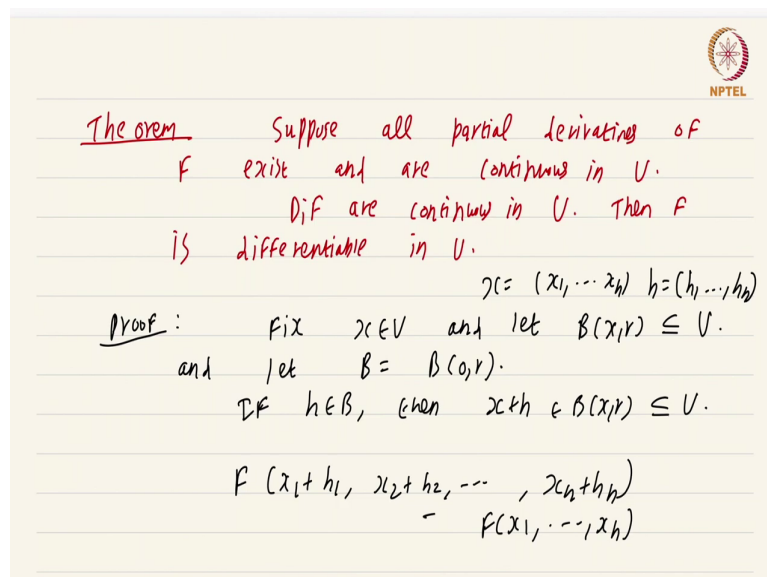 NPTEL
Theorem Suppose all partial derivatives of
F exist and are continuous in U.
DiF are continuous in U. Then F
is differentiable in U.
x = (x1, ... xn) h = (h1 ..., hn)
Proof : Fix x ∈ U and let B(x,r) ⊆ U.
and let B = B(0,r).
IF h ∈ B, then x+h ∈ B(x,r) ⊆ U.
F (x1 + h1, x2 + h2, --- , xn + hn)
- F(x1, ---, xn)